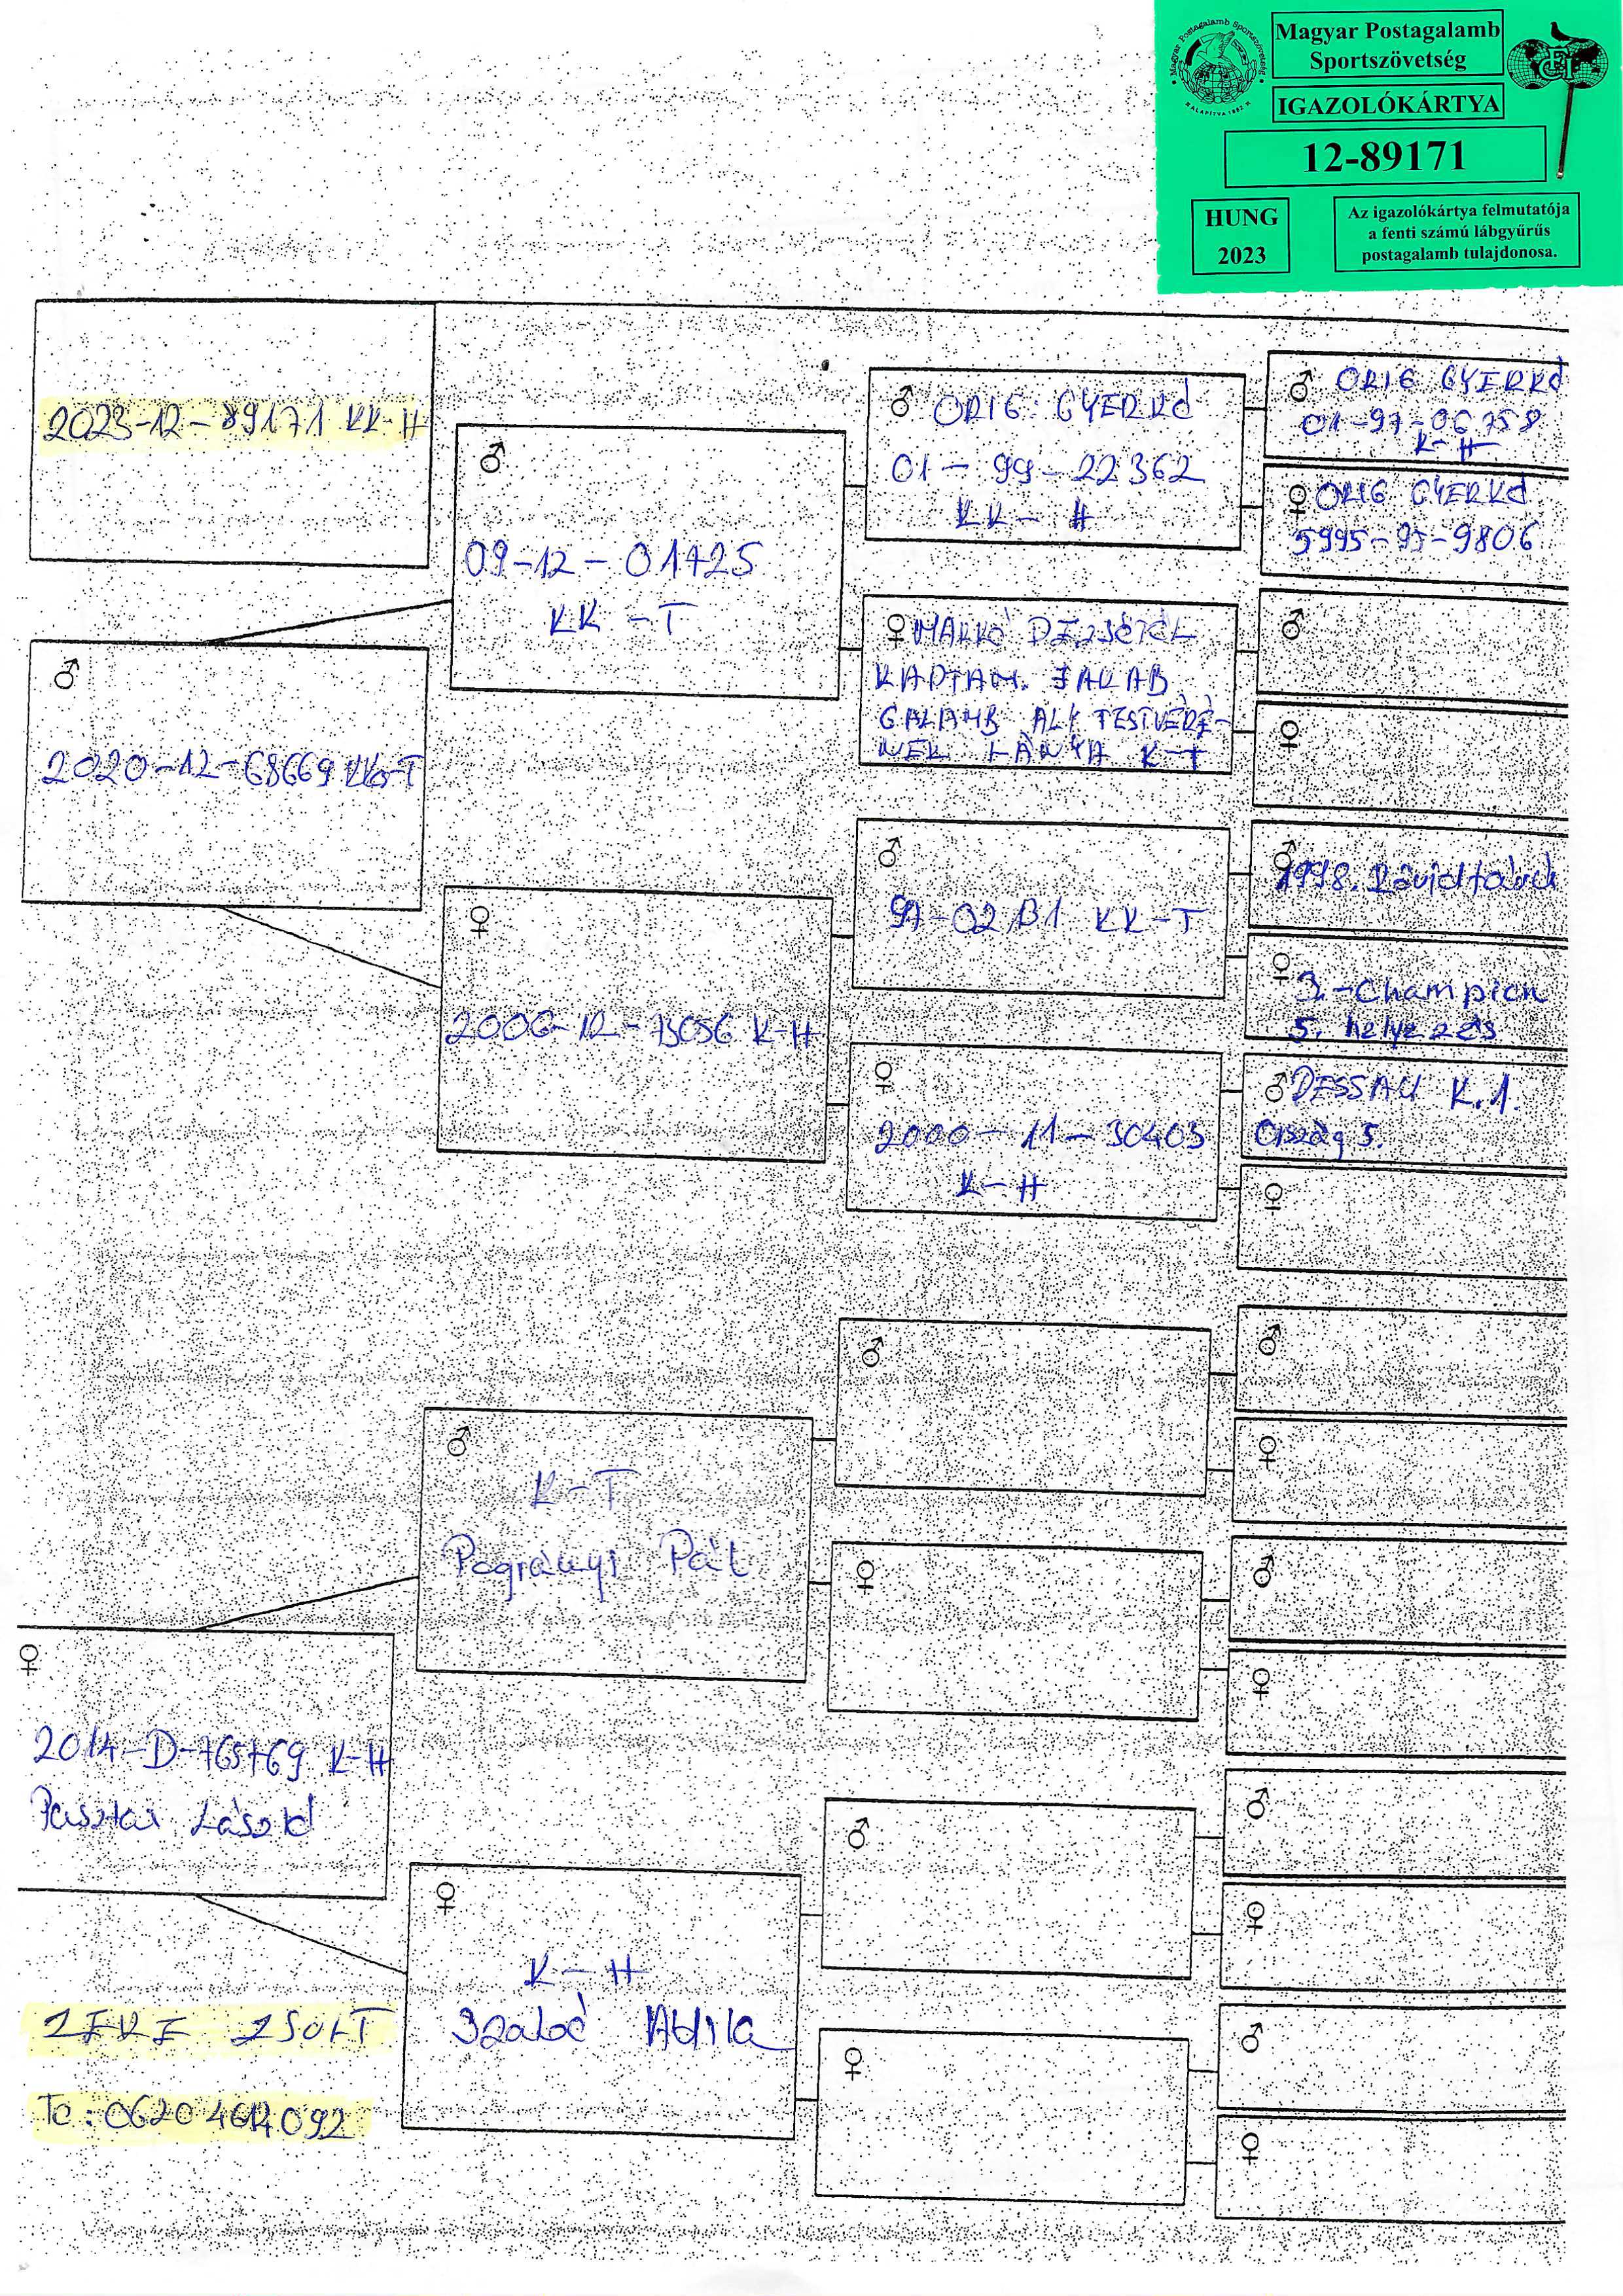 Magyar Postagalamb Sportszövetség
ALAPÍTVA 1882
Magyar Postagalamb
Sportszövetség
IGAZOLÓKÁRTYA
12-89171
HUNG
2023
Az igazolókártya felmutatója
a fenti számú lábgyűrűs
postagalamb tulajdonosa.
FCI
2023-12-89171 KK-H
♂
2020-12-68669 KK-T
♂
09-12-01425
KK-T
♀
2006-12-73056 K-H
♂ ORIG. GYERKÓ
01-99-22362
KK-H
♀ MARKÓ DEZSŐTŐL
KAPTAM. JAKAB
GALAMB ALK TESTVÉRÉ-
NEK LÁNYA K-T
♂
97-02 B1 KK-T
♀
2000-11-30403
K-H
♂ ORIG GYERKÓ
01-97-06758
K-H
♀ ORIG GYERKÓ
5995-95-9806
♂
♀
♂
1998. Rövidtávú
♀
3.-Champion
5. helyezés
♂ DESSAU K.1.
Ország 5.
♀
♀
2014-D-765769 K-H
Pásztor László
♂
K-T
Pogrányi Pál
♀
K-H
Szabó Attila
♂
♀
♂
♀
♂
♀
♂
♀
♂
♀
♂
♀
ZEKE ZSOLT
Te: 06204614092